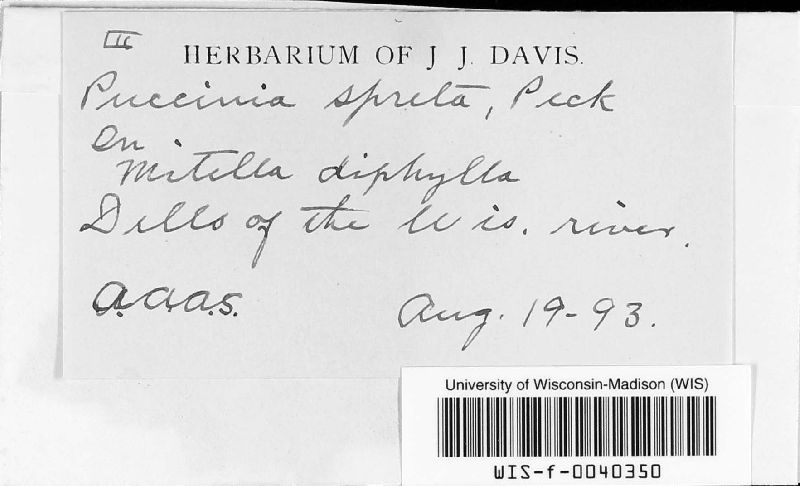 III
HERBARIUM OF J. J. DAVIS.
Puccinia spreta, Peck
On
Mitella diphylla
Dells of the Wis. river.
a.a.a.s.
Aug. 19-93.
University of Wisconsin-Madison (WIS)
WIS-f-0040350